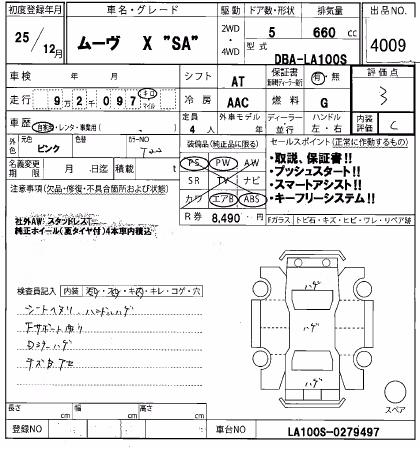 初度登録年月 車名・グレード 駆動 ドア数・形状 排気量 出品NO.
25/12月 ムーヴ X "SA" 2WD・4WD 5 660cc 4009
型式 DBA-LA100S
車検 年 月 シフト AT 保証書 有・無 評価点
走行 9万2千097 キロ マイル 冷房 AAC 燃料 G 3
車歴 自家用・レンタ・事業用( ) 定員 4人 外車モデル 年 ディーラー 並行 ハンドル 左・右 内装評価 C
外色 元色 ピンク 色替 カラーNO 装備品(純正品に限る) セールスポイント(正常に作動するもの)
名義変更期限 月 日迄 積載 t PS PW AW ・取説、保証書!!
注意事項(欠品・修復・不具合箇所および状態) SR TV ナビ ・プッシュスタート!!
カワ エアB ABS ・スマートアシスト!!
・キーフリーシステム!!
社外AW:スタッドレスT R券 8,490円
純正ホイール(夏タイヤ付)4本車内積込 Fガラス トビ石・キズ・ヒビ・ワレ・リペア跡
検査員記入 内装 ・キレ・コゲ・穴
シートヘタリ ハンドルハゲ
ハゲ
ハゲ
ハゲ
スペア
長さ cm 幅 cm 高さ cm
登録NO 車台NO LA100S-0279497